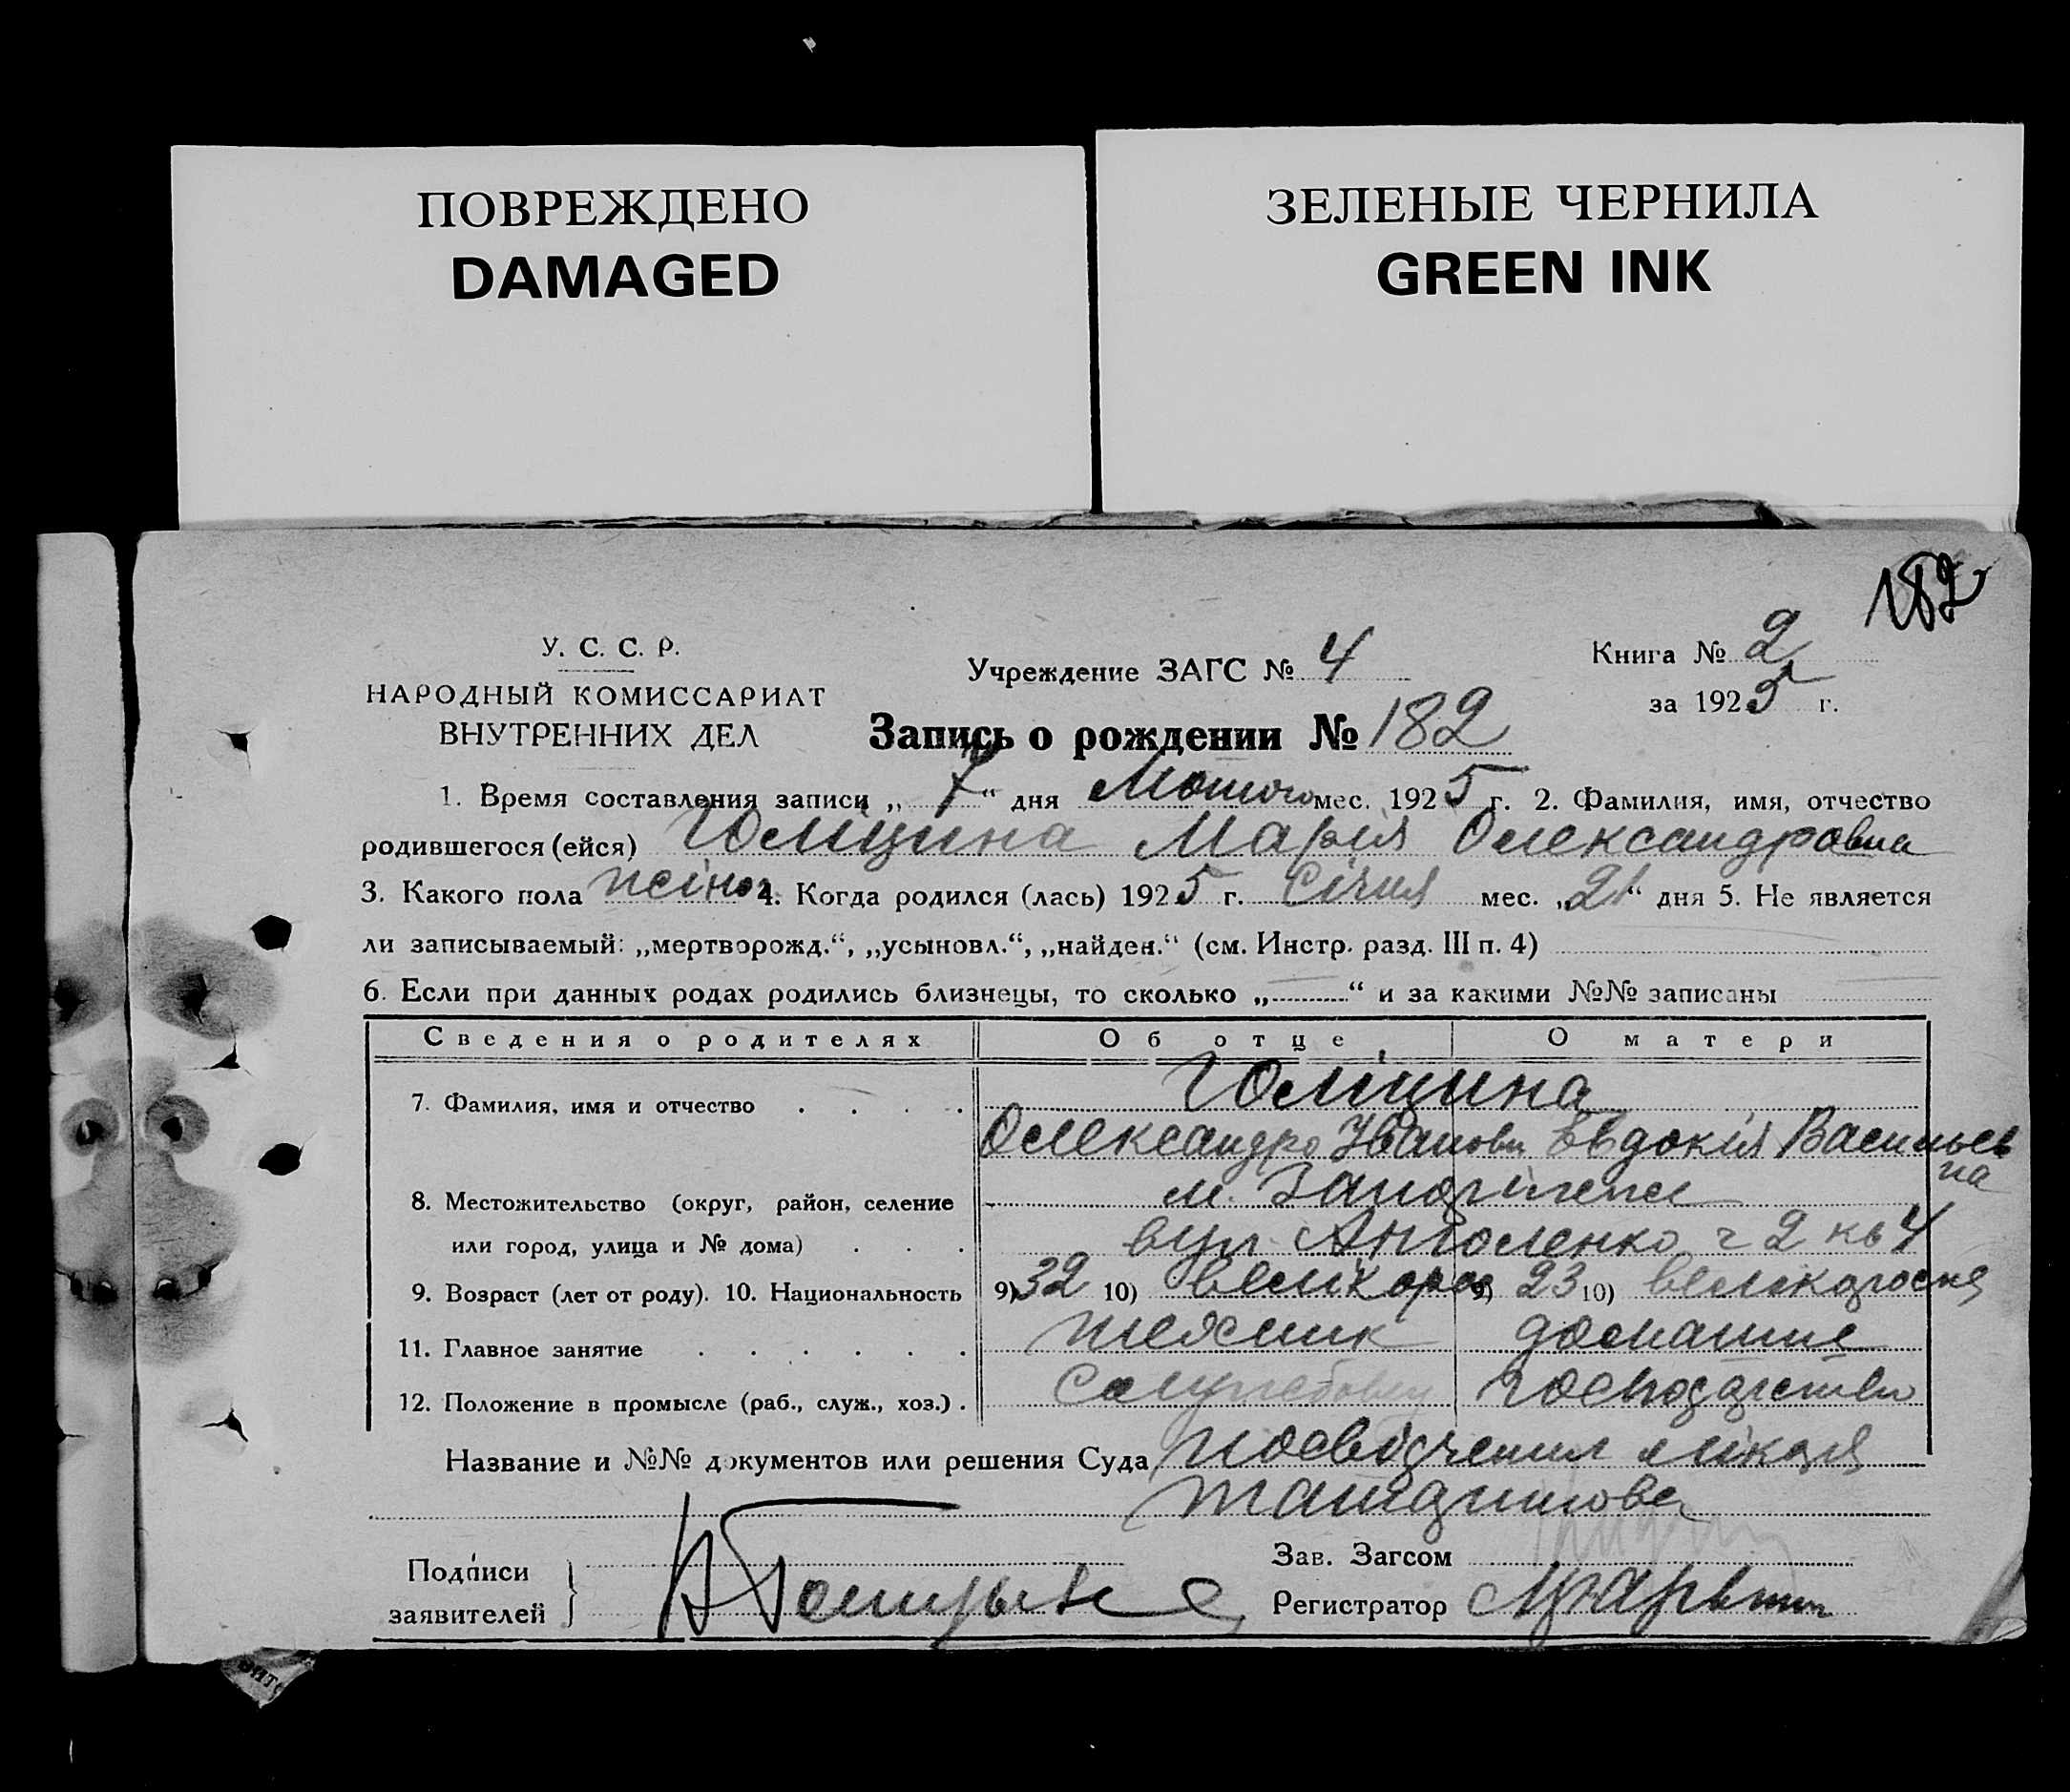 ПОВРЕЖДЕНО
DAMAGED
ЗЕЛЕНЫЕ ЧЕРНИЛА
GREEN INK
182
У. С. С. Р.
НАРОДНЫЙ КОМИССАРИАТ
ВНУТРЕННИХ ДЕЛ
Учреждение ЗАГС № 4
Книга № 2
за 1925 г.
Запись о рождении № 182
1. Время составления записи „7“ дня Лютого мес. 1925 г. 2. Фамилия, имя, отчество
родившегося (ейся) Юліцина Марія Олександровна
3. Какого пола жіноч 4. Когда родился (лась) 1925 г. Січня мес. „21“ дня 5. Не является
ли записываемый: „мертворожд.“, „усыновл.“, „найден.“ (см. Инстр. разд. III п. 4)
6. Если при данных родах родились близнецы, то сколько „ “ и за какими №№ записаны
Сведения о родителях Об отце О матери
7. Фамилия, имя и отчество Юліцина
Олександро Іванови Евдокія Васильев
на
8. Местожительство (округ, район, селение м. Запоріжжя
или город, улица и № дома) вул. ч 2 кв 4
9. Возраст (лет от роду). 10. Национальность 9) 32 10) великорос 9) 23 10) великороска
11. Главное занятие домашнє
12. Положение в промысле (раб., служ., хоз.) господарство
Название и №№ документов или решения Суда посвідчення лікаря
Подписи
заявителей
Зав. Загсом
Регистратор